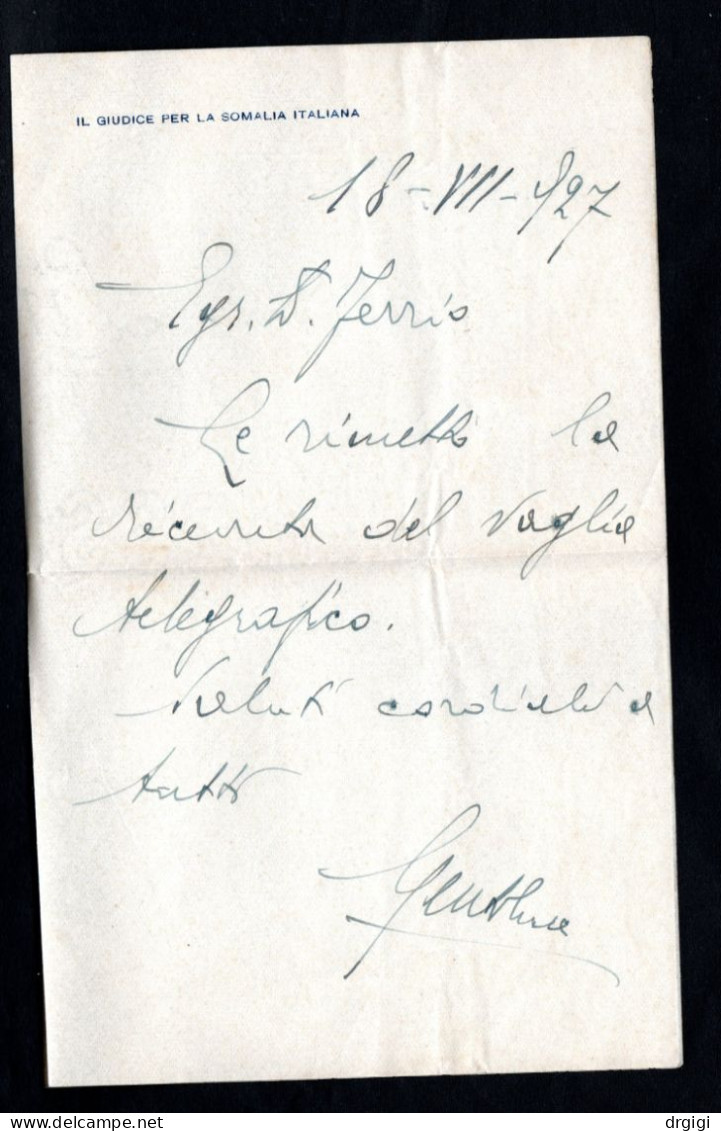 IL GIUDICE PER LA SOMALIA ITALIANA
18-VII-927
Egr. D. Ferris
Le rimetto la
ricevuta del vaglia
telegrafico.
Saluti cordiali a
tutti
drgigi